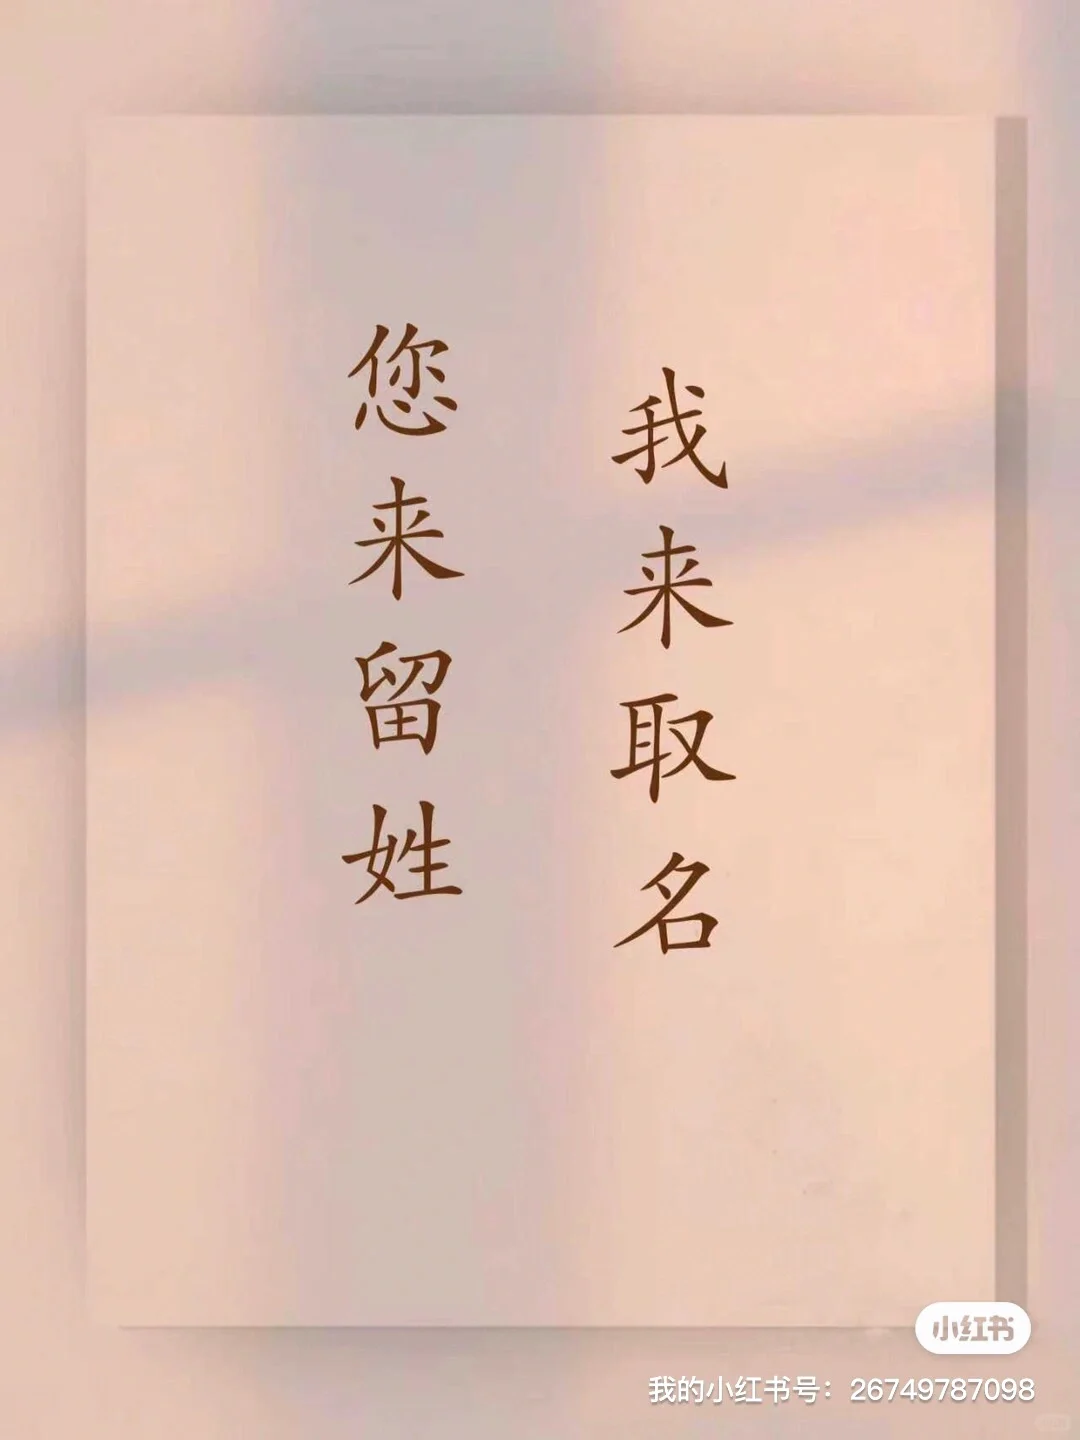 您来留姓
我来取名
小红书
我的小红书号：26749787098